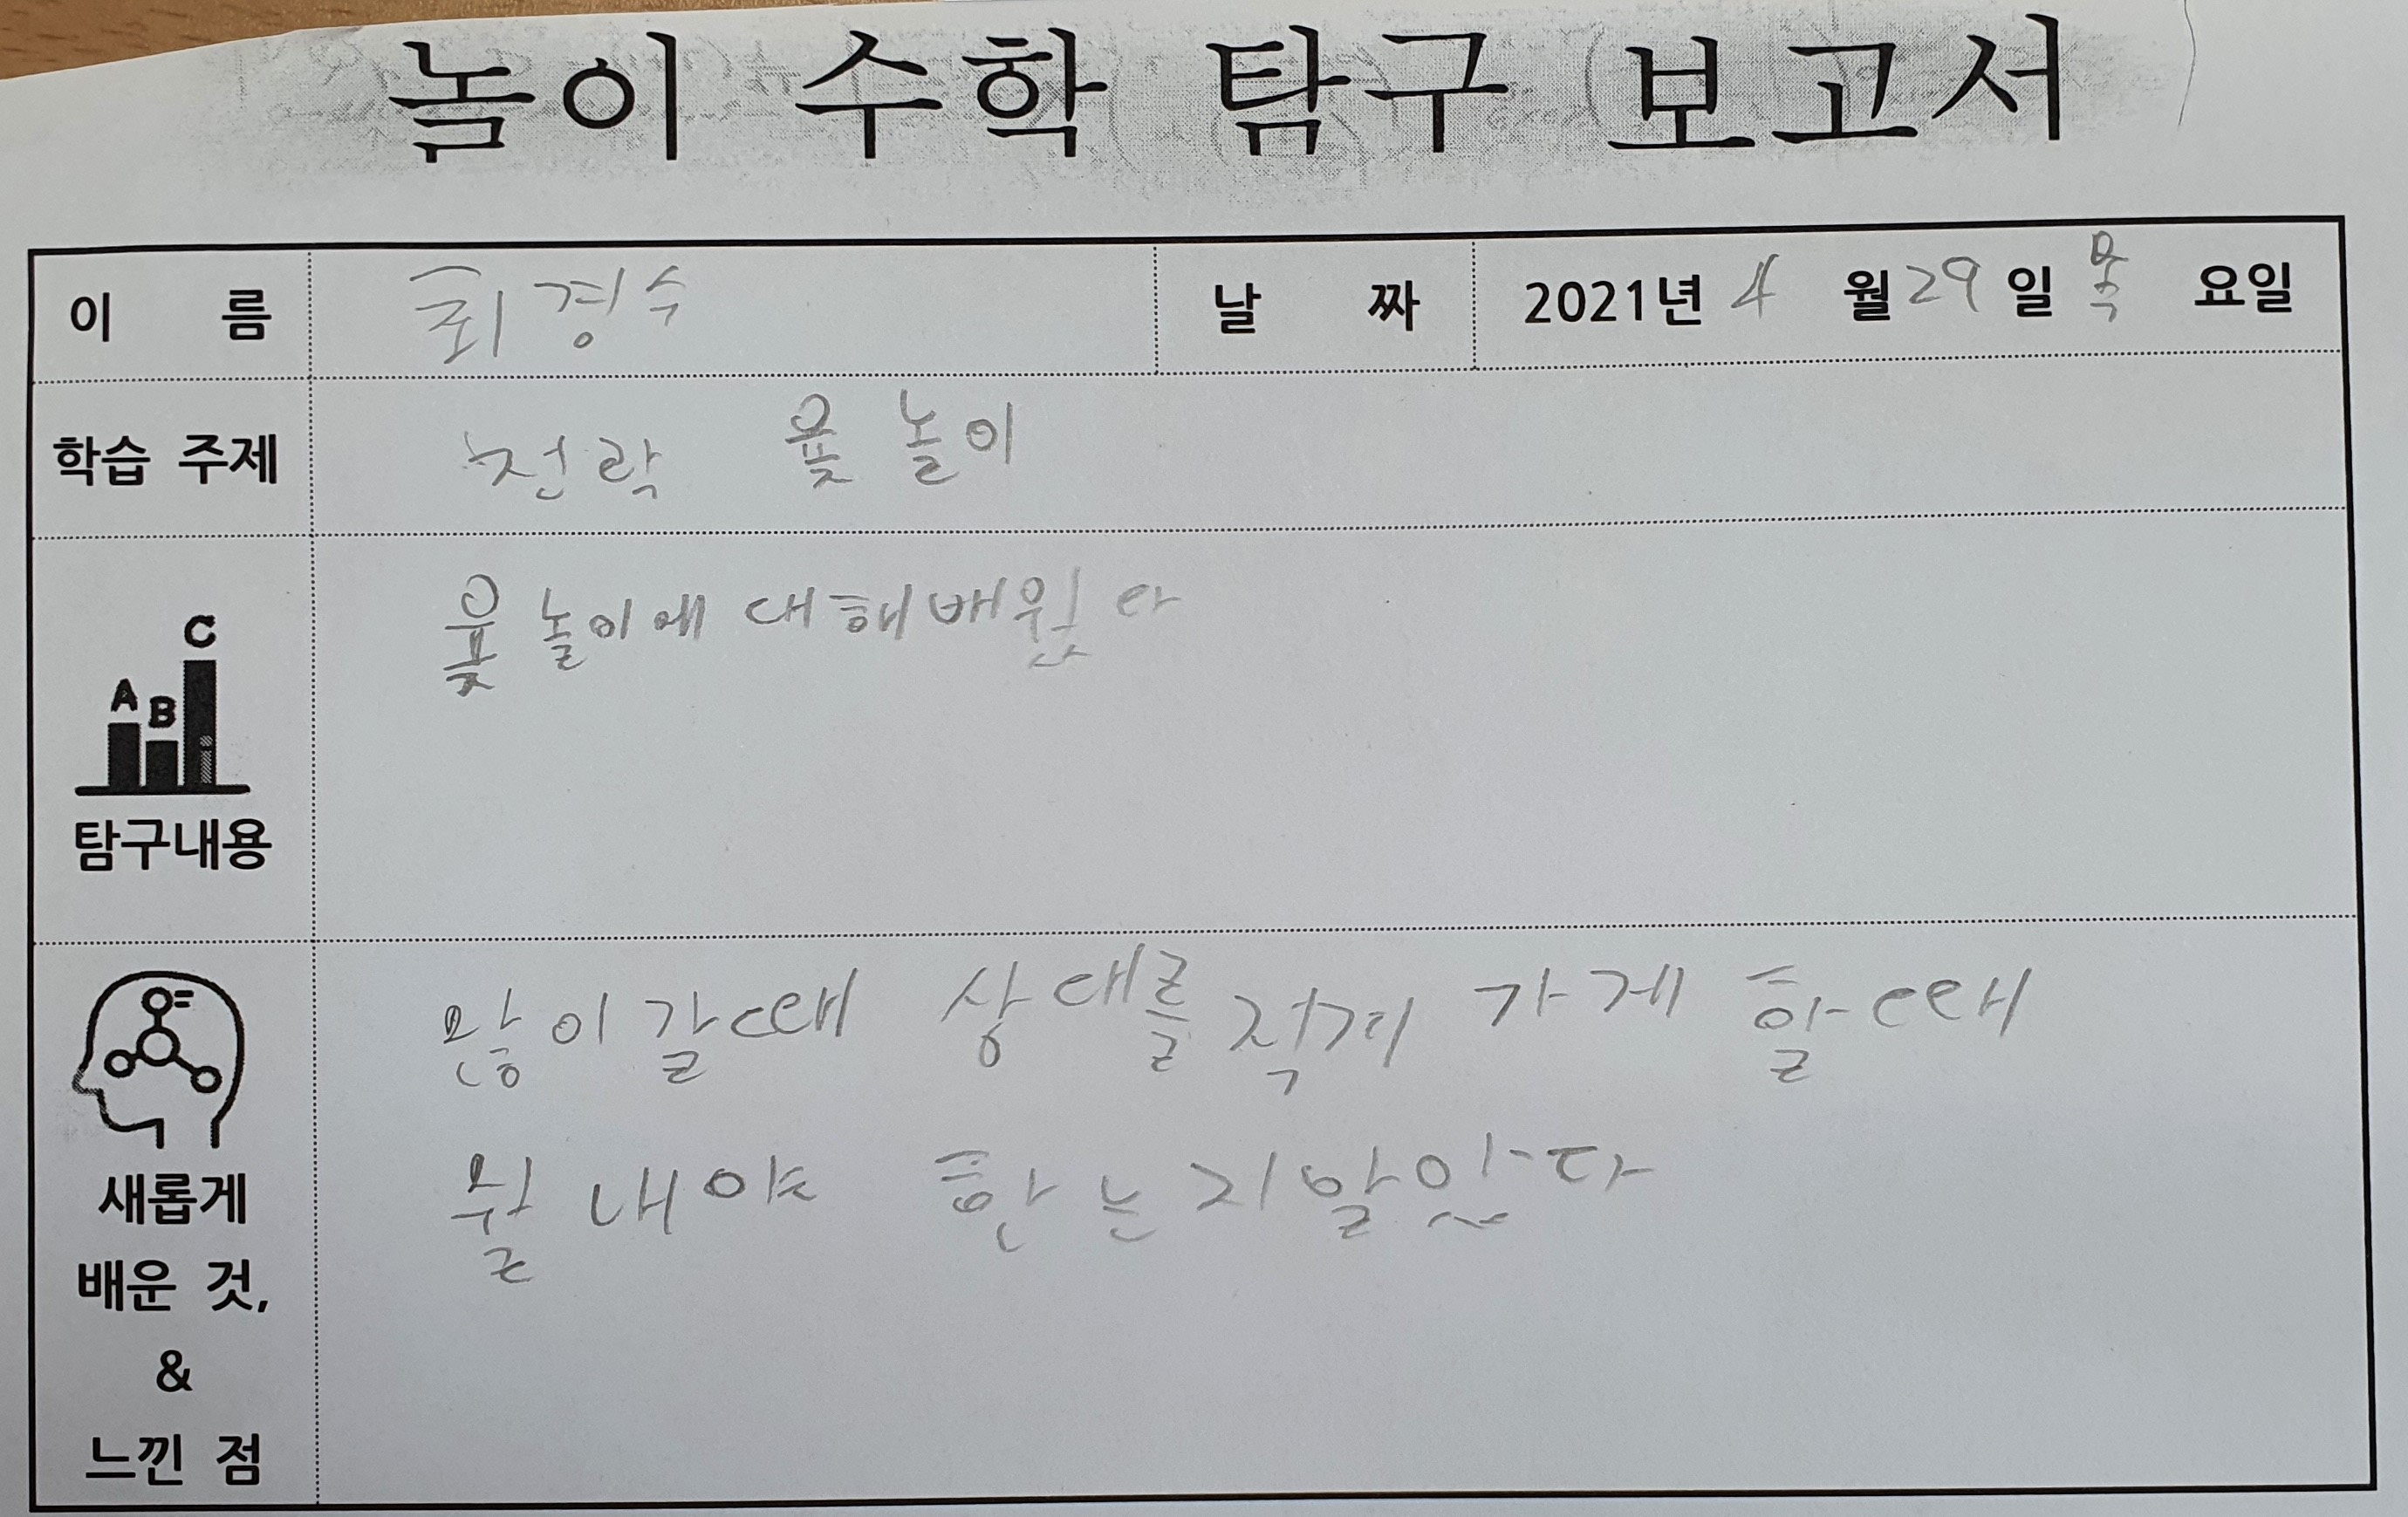 놀이 수학 탐구 보고서
이 름 최경수 날 짜 2021년 4 월 29 일 목 요일
학습 주제 전략 윷 놀이
C
A B
탐구내용
윷놀이에 대해배웠다
많이갈때 상대를적게 가게 할때
뭘 내야 한는지알았다
새롭게
배운 것,
&
느낀 점